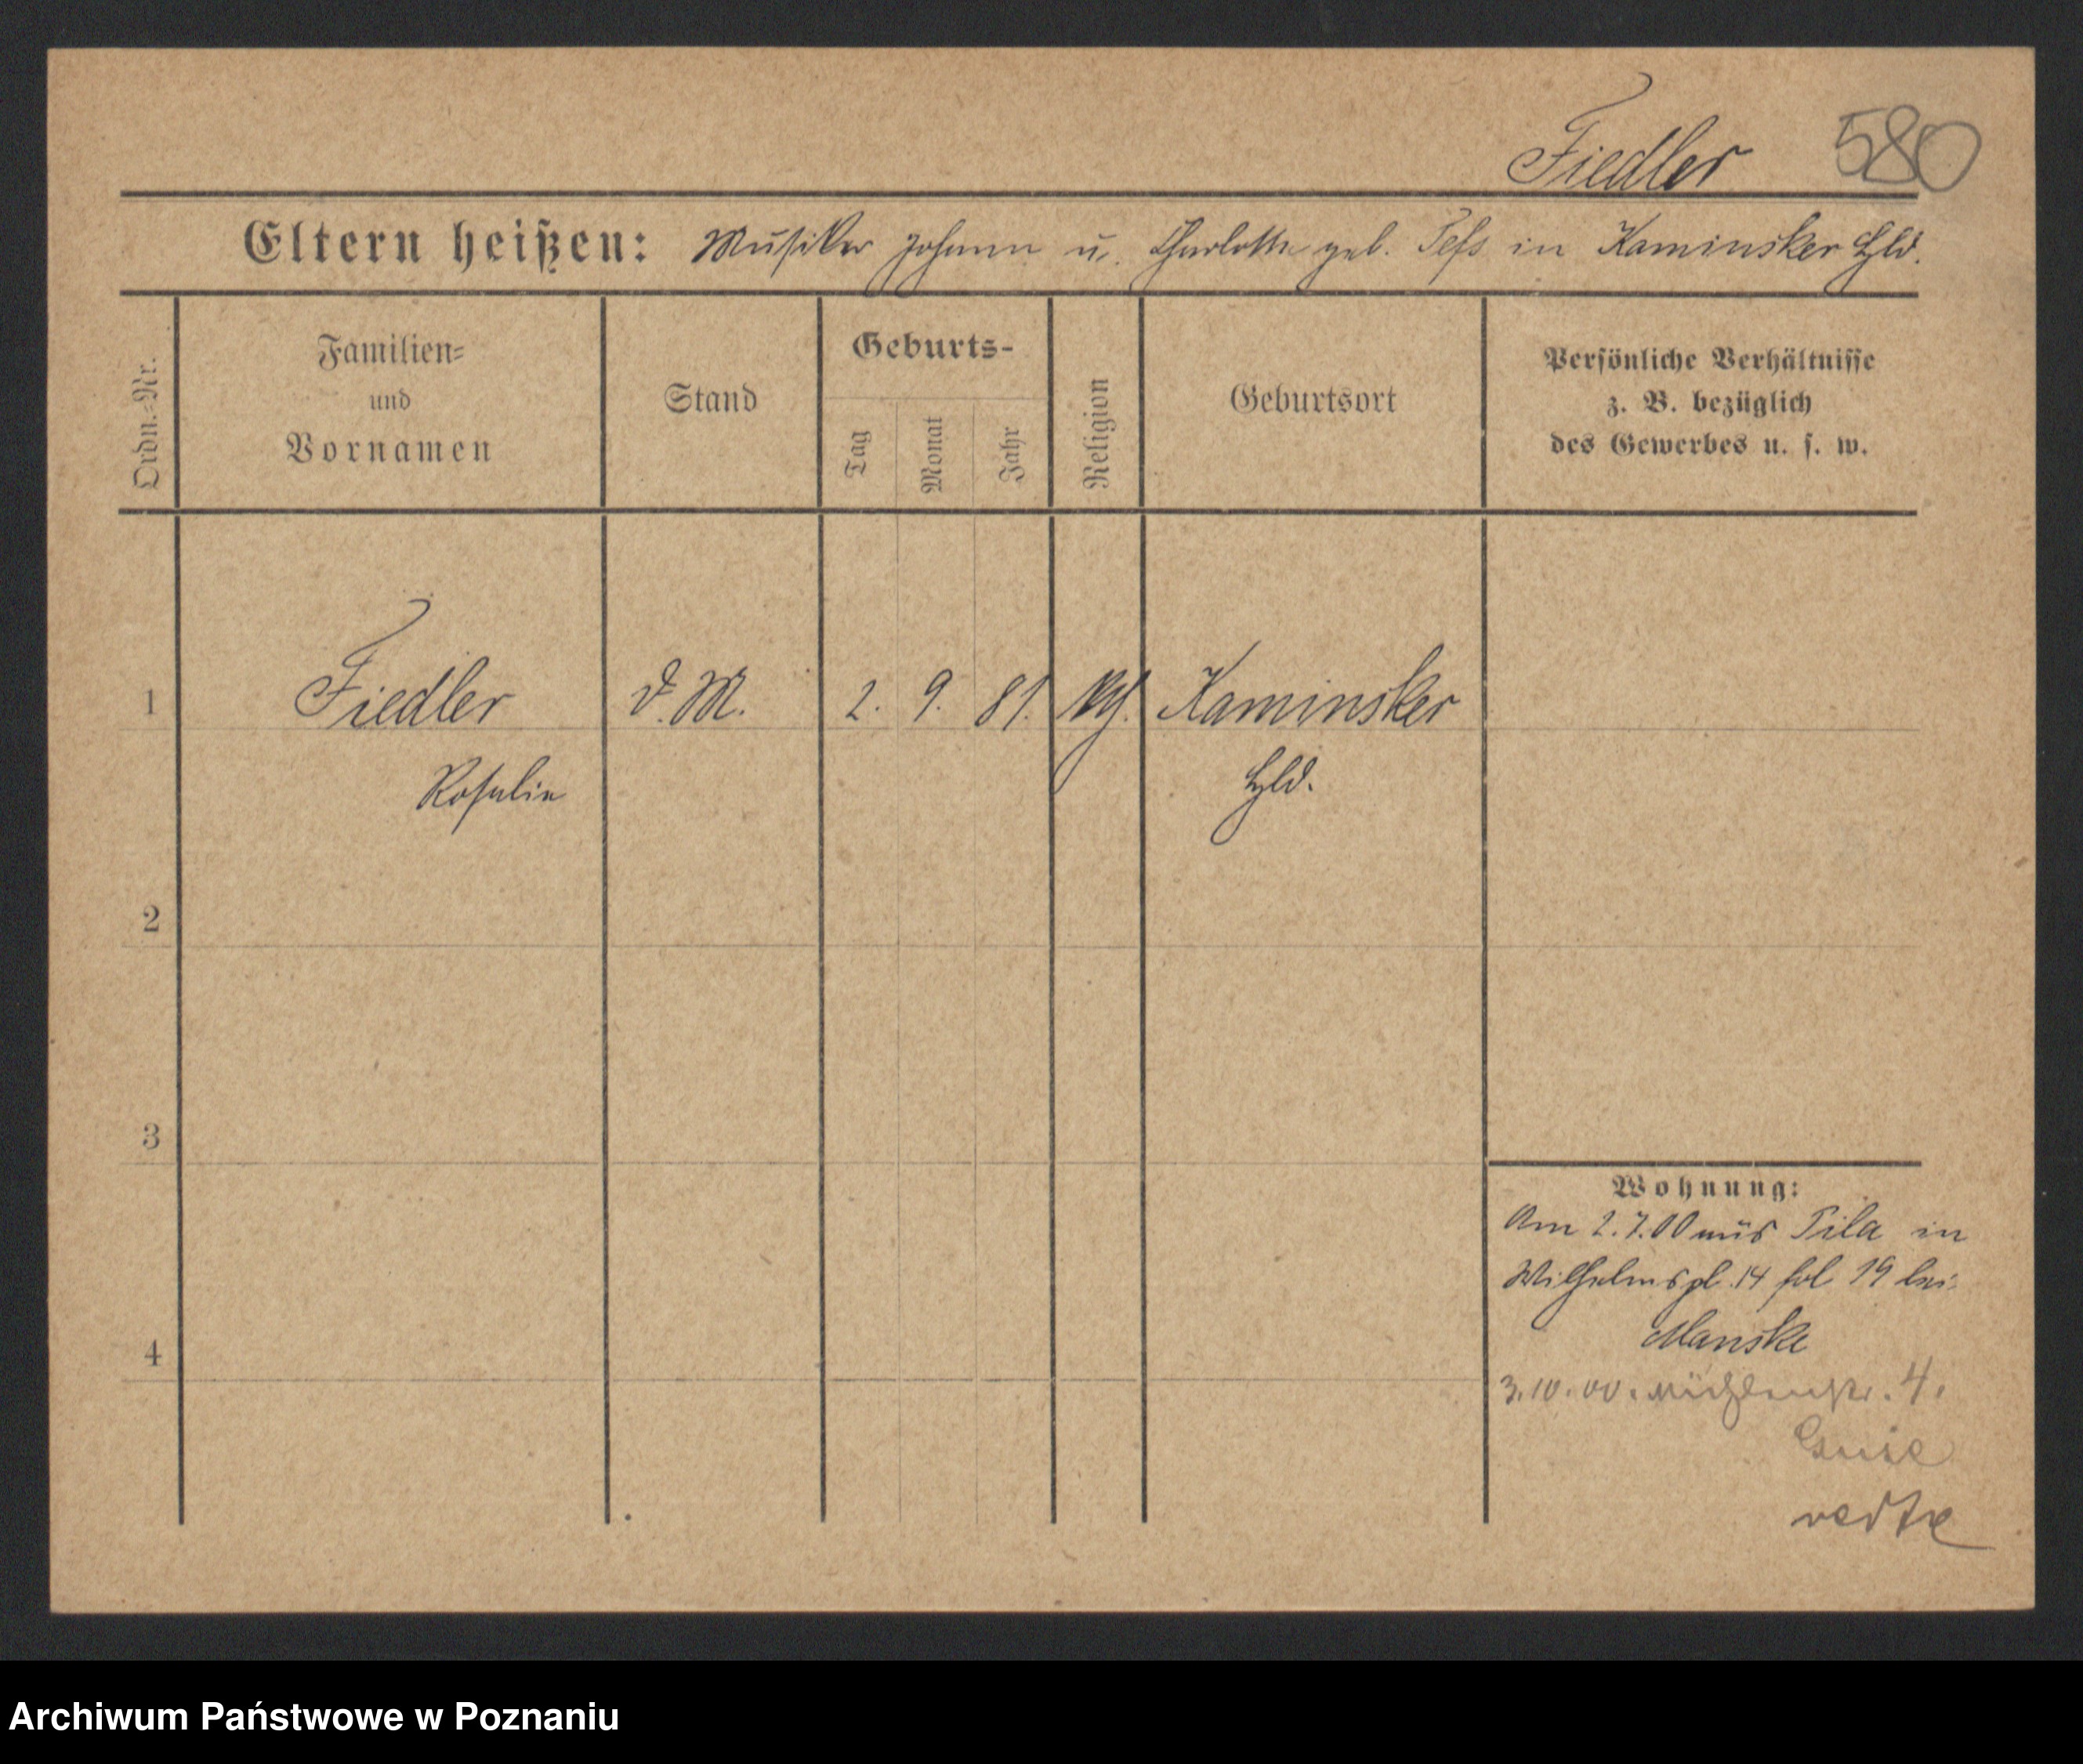 Fiedler 580
Eltern heißen: Musiker Johann u. Charlotte geb. Tess in Kaminsker Hld.
Ordn.-Nr.
Familien-
und
Vornamen
Stand
Geburts-
Tag
Monat
Jahr
Religion
Geburtsort
Persönliche Verhältnisse
z. B. bezüglich
des Gewerbes u. s. w.
1 Fiedler d. M. 2. 9. 81. Kaminsker
Rosalie Hld.
2
3
4
Wohnung:
Am 2.7.00 aus Pila in
Wilhelmspl. 14 hol 19 bei
Manske
3.10.00. Mühlenstr. 4.
Archiwum Państwowe w Poznaniu